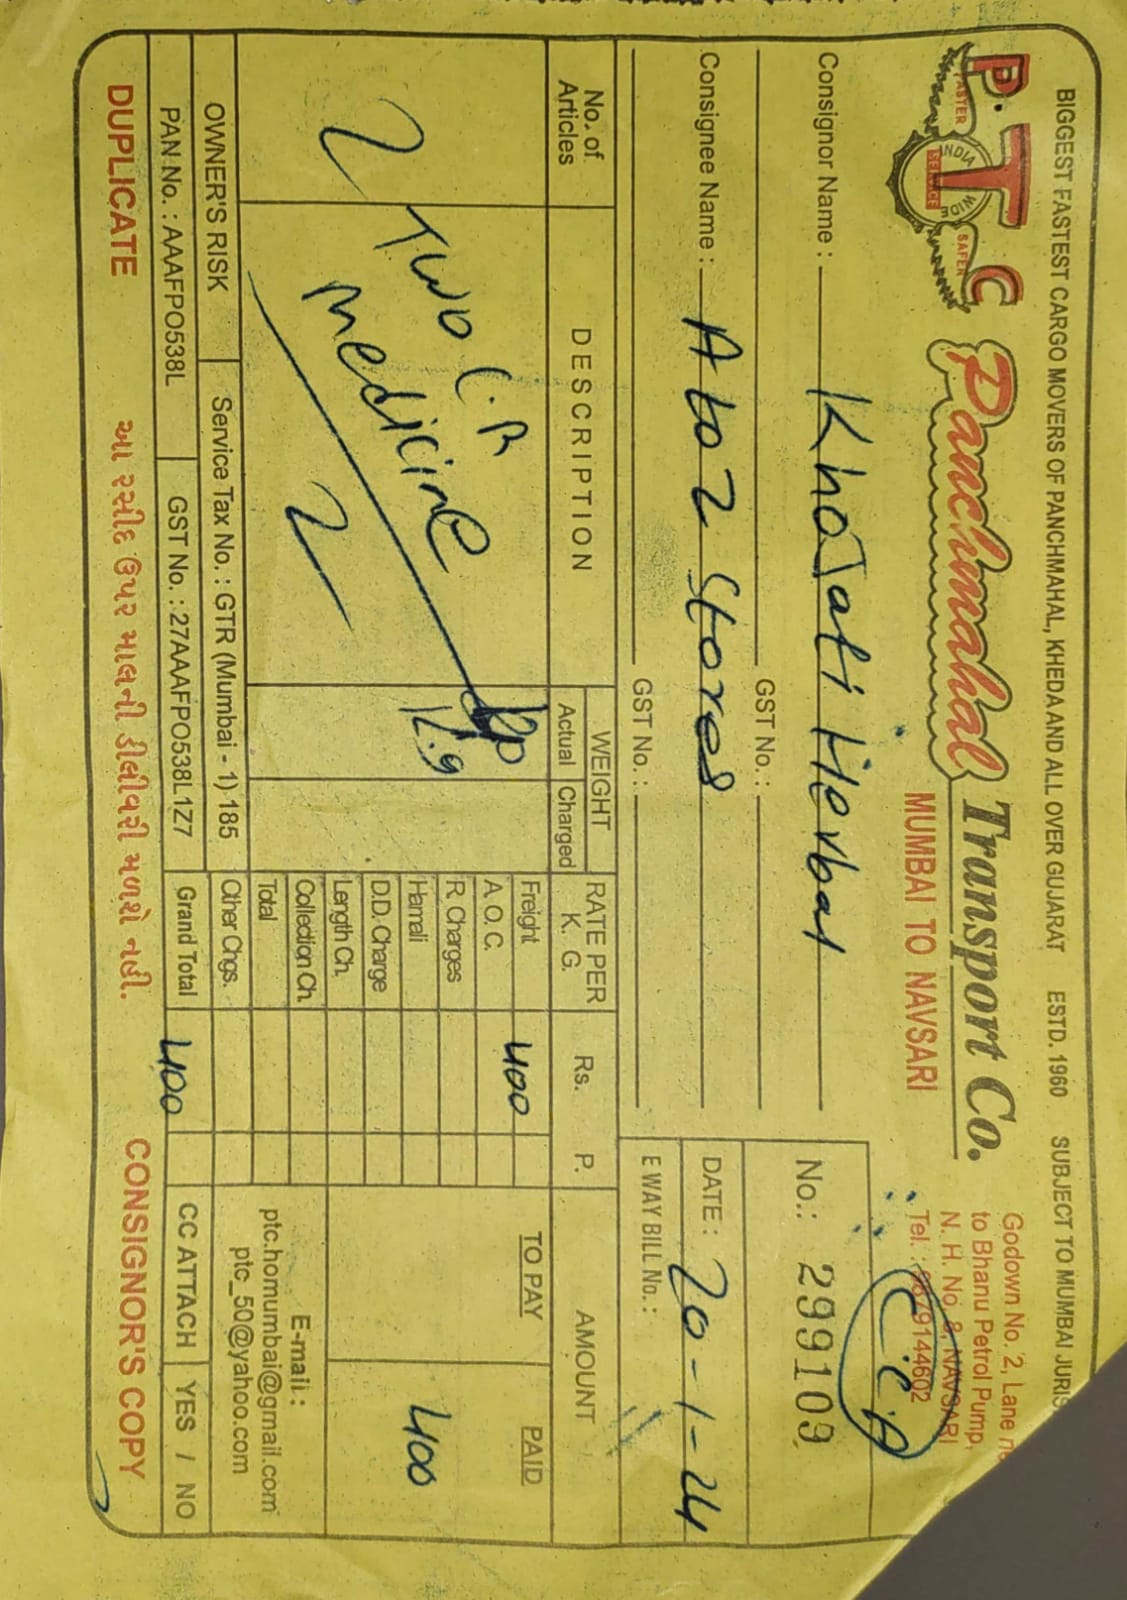 BIGGEST FASTEST CARGO MOVERS OF PANCHMAHAL, KHEDA AND ALL OVER GUJARAT ESTD. 1960 SUBJECT TO MUMBAI JURIS
P. T C
FASTER INDIA WIDE SERVICE SAFER
Panchmahal Transport Co.
MUMBAI TO NAVSARI
Godown No. 2, Lane
to Bhanu Petrol Pump,
N. H. No. 8, NAVSARI
Tel. : 9879144602
C.C.A
Consignor Name : Khojati Herbal
No.: 299109
GST No. :
Consignee Name : A to Z Stores
DATE : 20-1-24
GST No. :
E WAY BILL No. :
No. of Articles DESCRIPTION WEIGHT Actual Charged RATE PER K. G. Rs. P. AMOUNT
TO PAY PAID
2 Two C.B
Medicine
2
Freight 400
A.O.C.
R Charges
Hamali 400
D.D. Charge
Length Ch.
Collection Ch.
E-mail :
Total
ptc.homumbai@gmail.com
Other Chgs.
ptc_50@yahoo.com
OWNER'S RISK Service Tax No. : GTR (Mumbai - 1) 185
PAN No. : AAAFPO538L GST No. : 27AAAFPO538L1Z7 Grand Total 400 CC ATTACH YES / NO
DUPLICATE આ રસીદ ઉપર માલની ડીલીવરી મળશે નહી. CONSIGNOR'S COPY